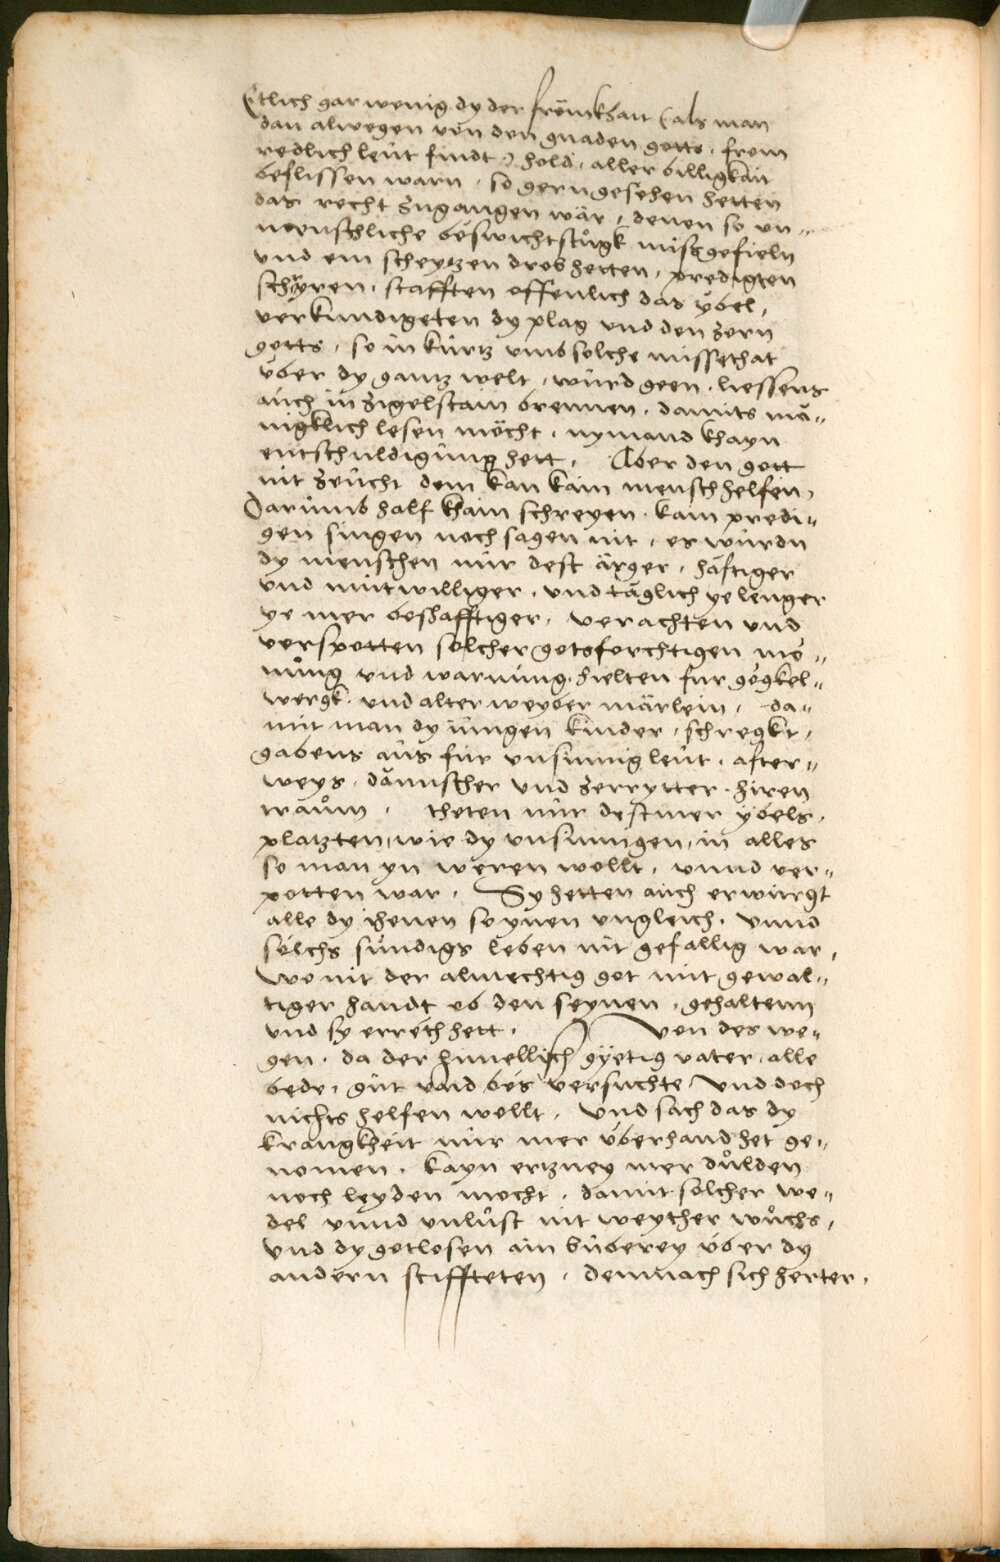 Etlich gar wenig dy der frümkhait (als man
dan alwegen von den gnaden gotts, from
redlich leüt findt) hold, aller billigkait
beflissen warn, so gern gesehen hetten
das recht zugangen wär, denen so un„
menschliche böswichtstugk misgefieln
und ein scheytzen drob hetten, predigten
schryren, strafften offenlich das ÿbel,
verkundigeten dy plag und den zorn
gotts, so in kürtz umb solche missethat
über dy gantz welt, würd geen, liessens
auch in zigelstain brennen, damits mä„
nigklich lesen möcht, nymand khayn
entschuldigüng hett, Aber den gott
nit zeücht dem kan kain mensch helfen,
Darümb half khain schreyen, kain predi„
gen singen noch sagen nit, es würdn
dy menschen nür dest ärger, häftiger
und mütwilliger, und täglich ye lenger
ye mer beshafftiger, verachten und
verspotten solcher gotsforchtigen mo„
nüng und warnüng, hielten fur gögkel„
wergk, und alter weyber märlein, da„
mit man dy jüngen kinder, schregkt,
gabens aüs für unsinnig leüt, after„
weys, dämischer und zerrytter hiren
traüm, theten nür dest mer ÿbels,
platzten, wie dy unsinnigen, in alles
so man yn weren wollt, unnd ver„
potten war, Sy hetten auch erwürgt
alle dy ihenen so ynen ungleich, unnd
sölchs sündigs leben nit gefallig war,
wo nit der almechtig got mit gewal„
tiger handt ob den seynen, gehaltenn
und sy erreth hett, Von des we„
gen, da der himellisch gÿetig vater, alle
bede, güt und bös versuchte, und doch
nichts helfen wollt, und sach das dy
krangkheit nür mer überhand het ge„
nomen, kayn ertzney mer dulden
noch leyden mocht, damit solcher we„
del unnd unlust nit weyther wuchs,
und dy gotlosen ain büberey über dy
andern stiffteten, demnach sich herter,